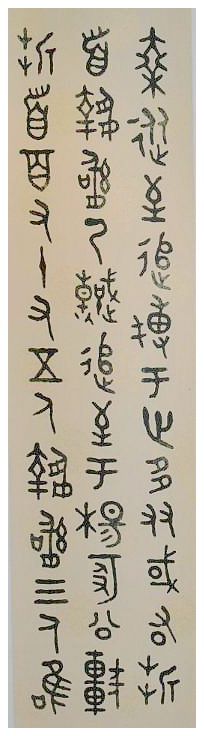 乘從至追搏于世多友或右折
首執訊乃軼追至于楊冢公車
折首百又十又五人執訊三人唯